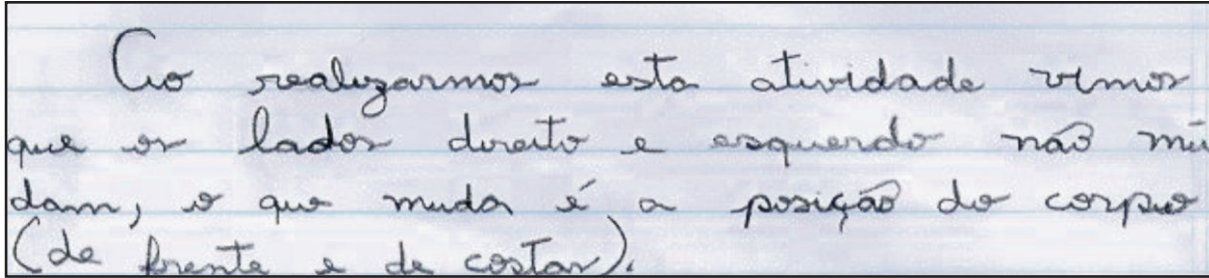 Ao realizarmos esta atividade vimos
que os lados direito e esquerdo não mu
dam, o que muda é a posição do corpo
(de frente e de costas).